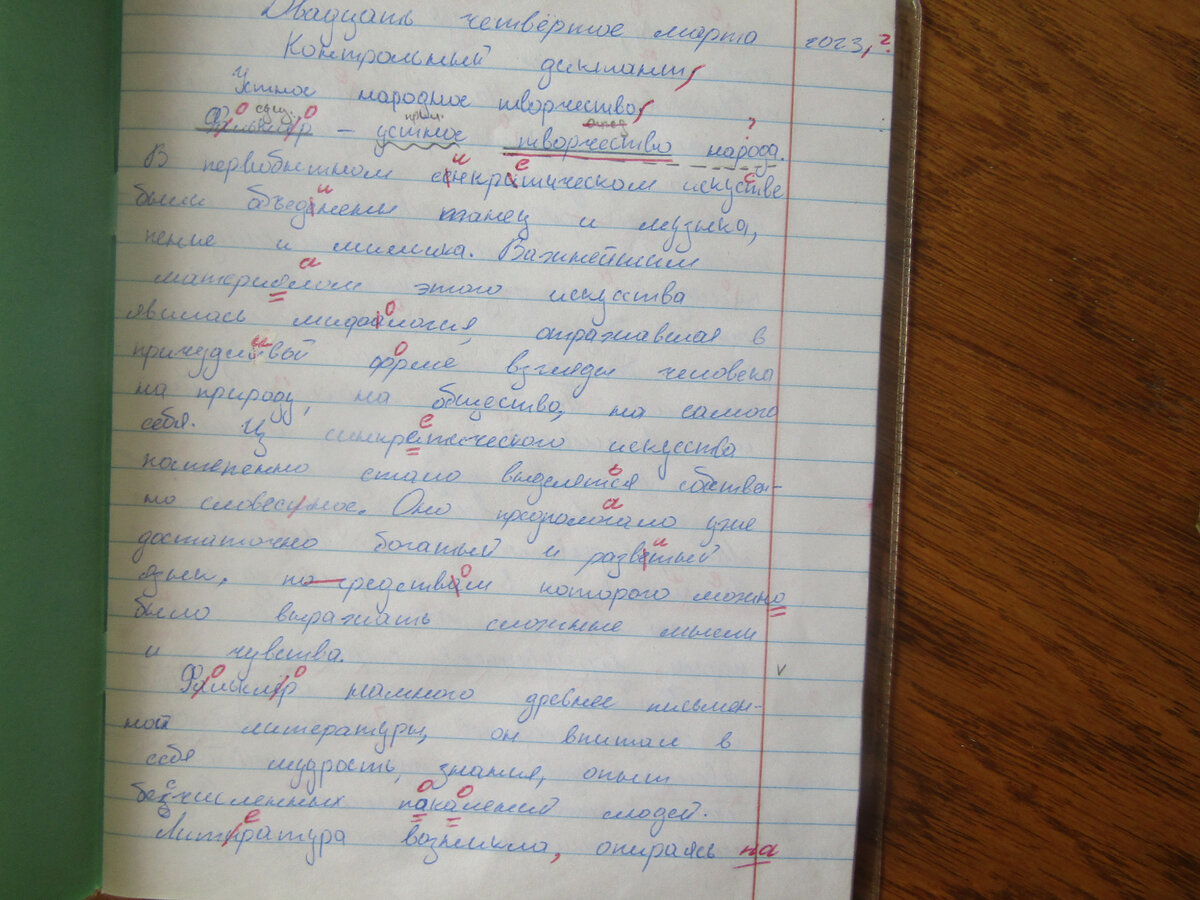 Двадцать четвёртое марта 2023, ?
Контрольный диктант
Устное народное творчество
Фальклар – устное творчество народа.
В первобытном сенкратическом искустве
были объеденены танец и музыка,
пение и мимика. Важнейшим
материолом этого искусства
явилась мифалогия, отражавшая в
причудливой форме взгляды человека
на природу, на общество, на самого
себя. Из синкратического искусства
постепенно стало выделятся собствен-
но словесное. Оно предполагало уже
достаточно богатый и разветый
язык, по средствам которого можно
было выражать сложные мысли
и чувства.
Фальклар намного древнее письмен-
ной литературы, он впитал в
себя мудрость, знания, опыт
безчисленных пакалений людей.
Литиратура возникла, опираясь на